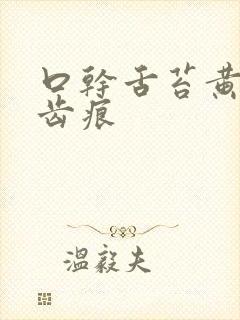 口幹舌苔黄
齿痕
温毅夫